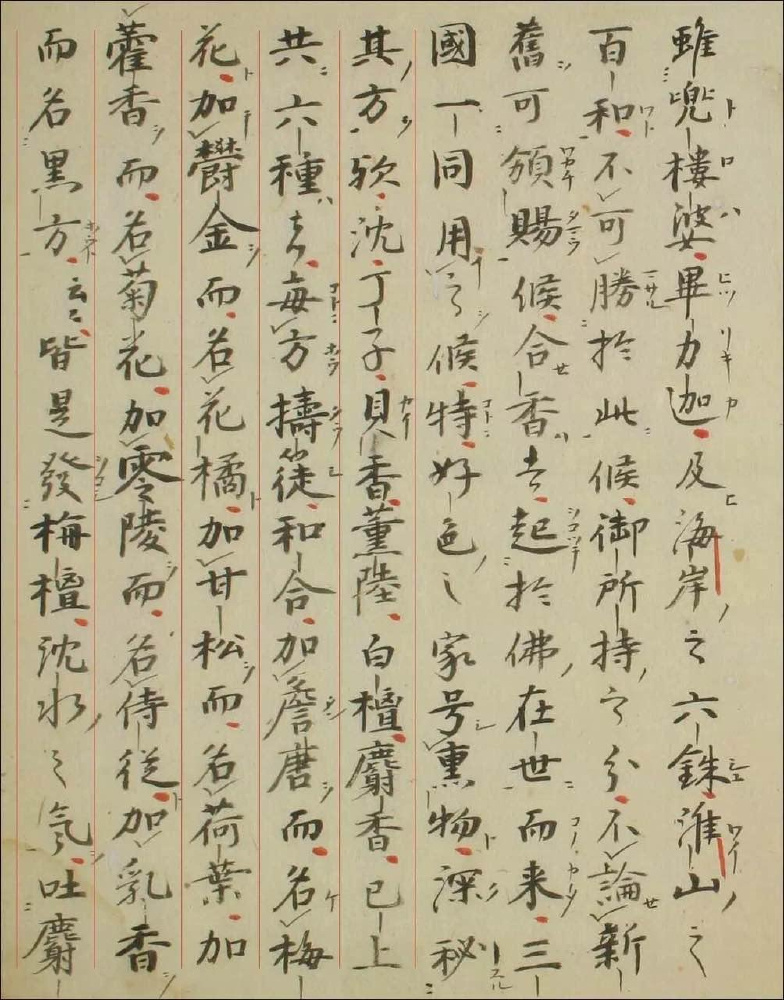 雖兜樓婆畢力迦及海岸之六銖淮山之
百和不可勝於此候御所持之分不論新
舊可頒賜候合香者起於佛在世而来三
國一同用之候特好色之家号熏物深秘
其方欤沈丁子貝香薫陸白檀麝香已上
共六種者毎方擣篵和合加詹唐而名梅
花加欝金而名花橘加甘松而名荷葉加
藿香而名菊花加零陵而名侍従加乳香
而名黒方云々皆是發梅檀沈水之氣吐麝